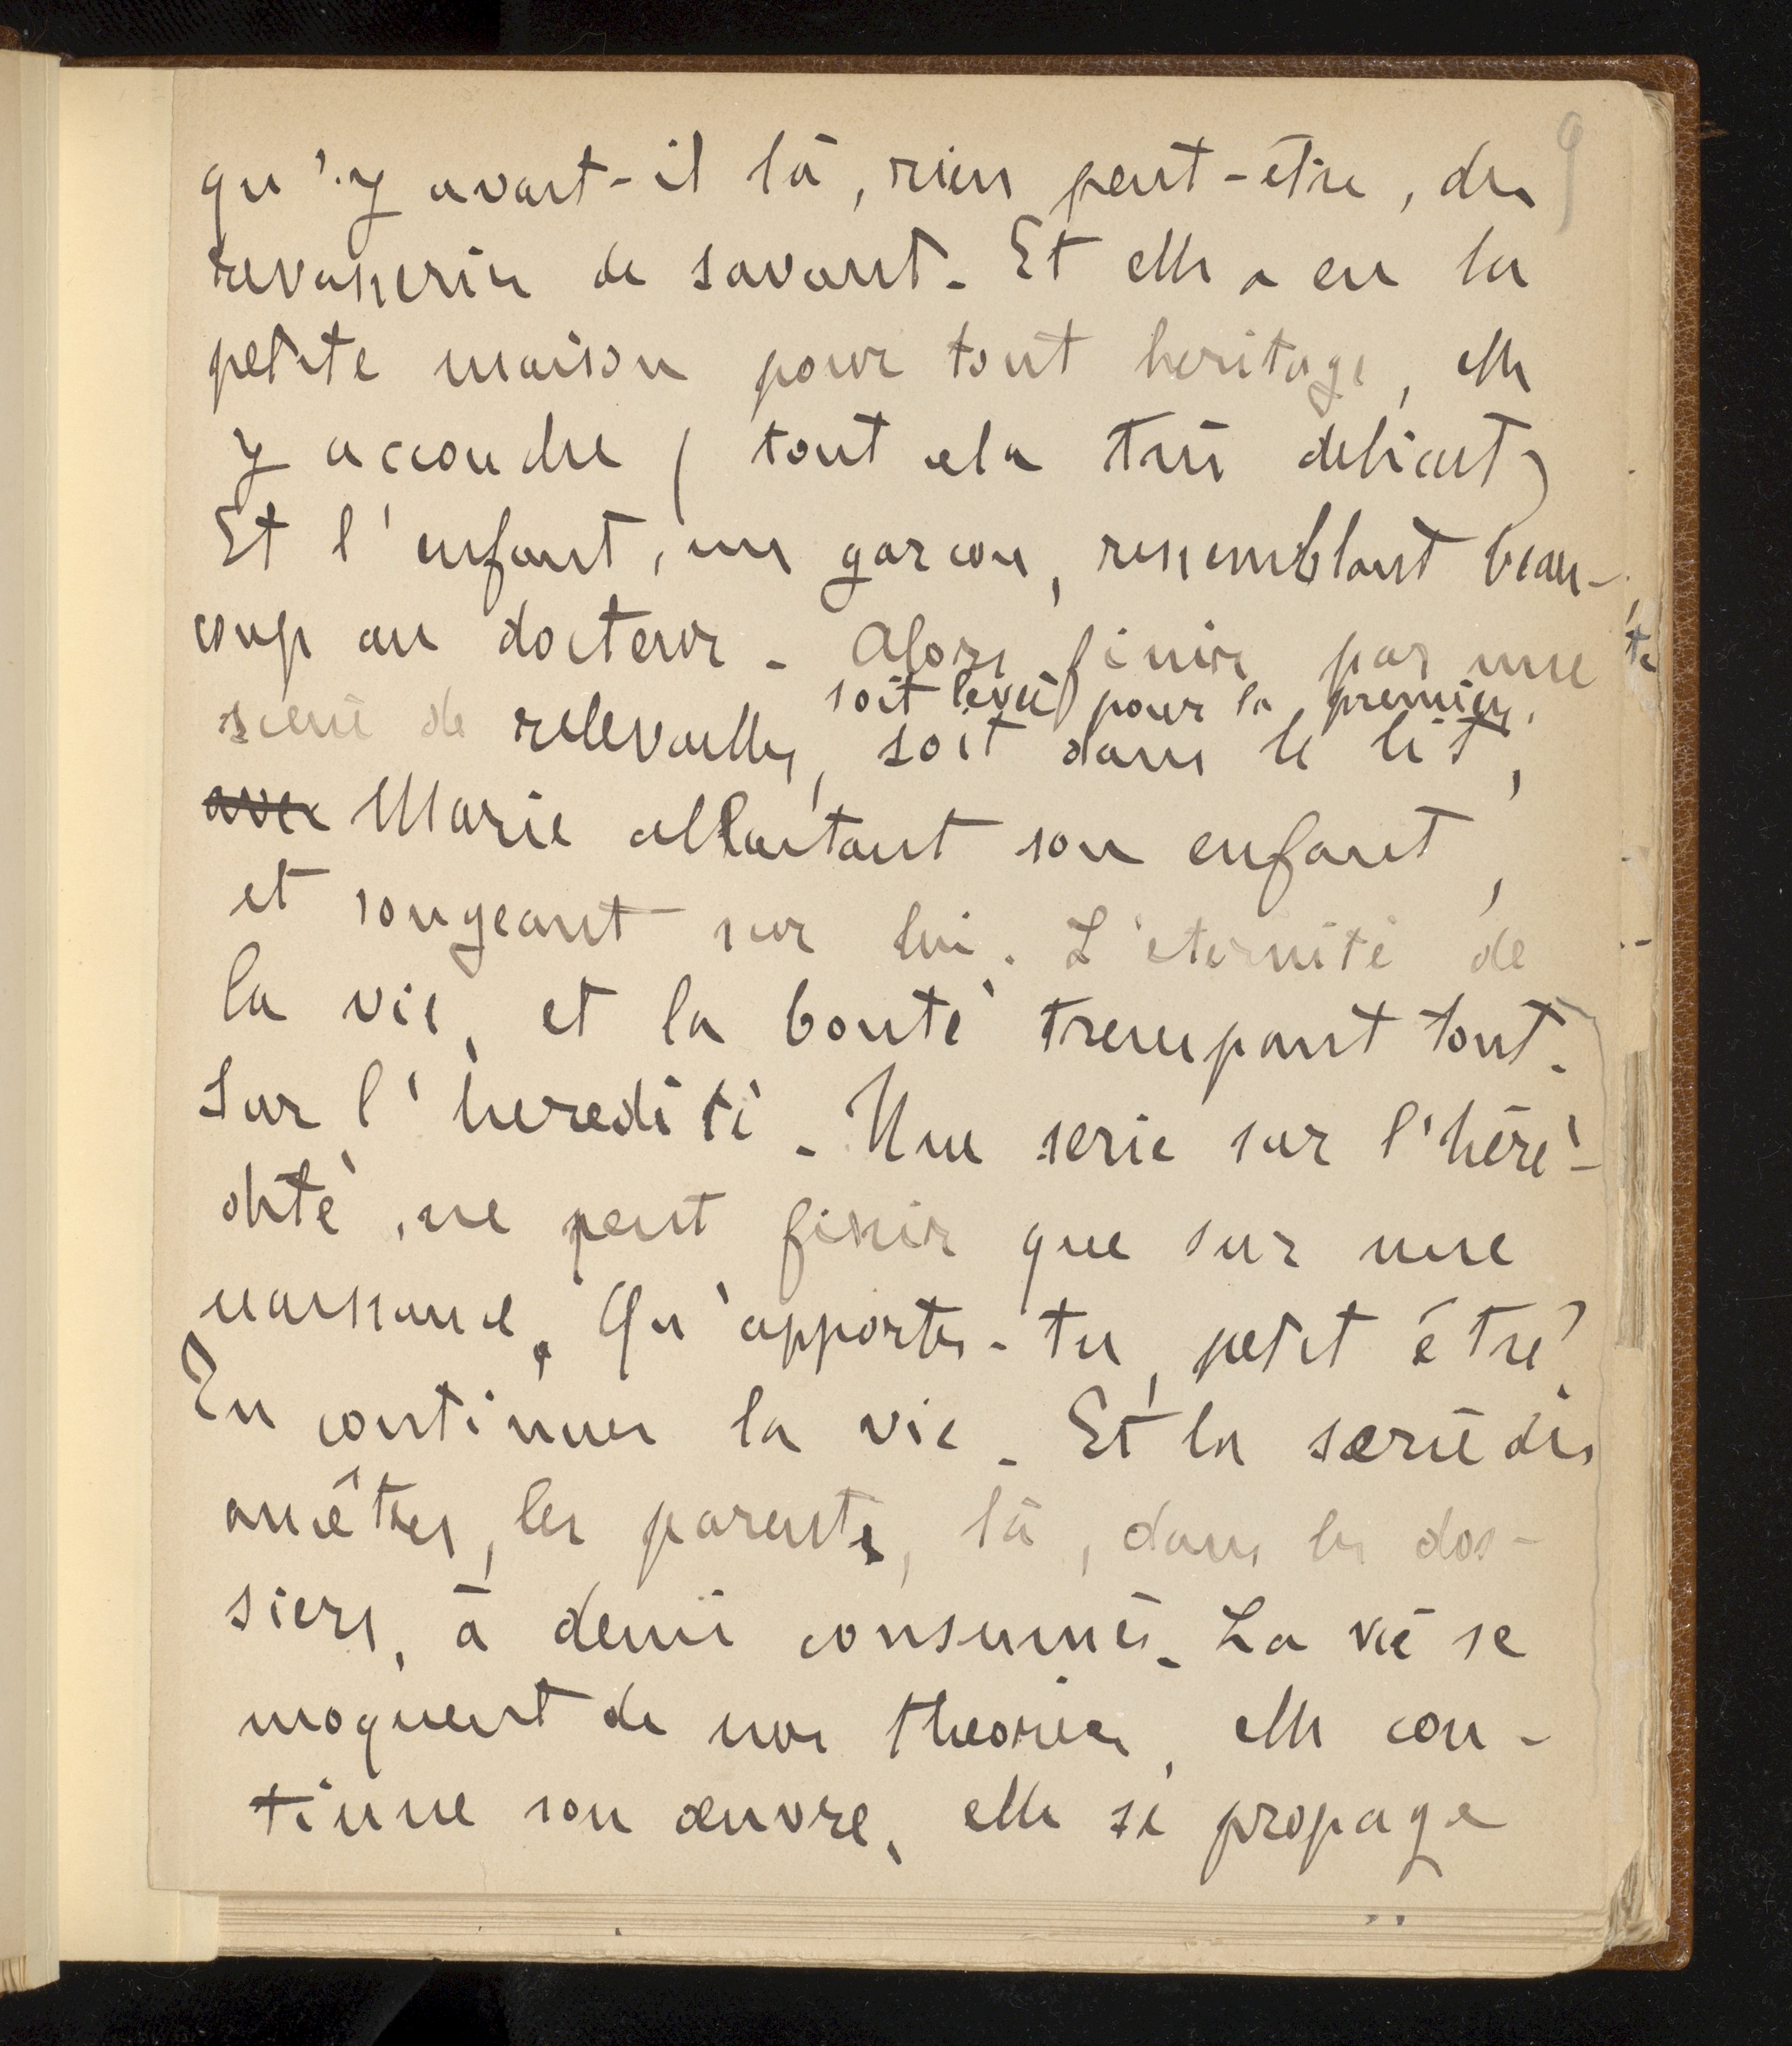 9
qu'y avait-il là, rien peut-être, des
revasseries de savant. Et elle a eu la
petite maison pour tout heritage, elle
y accouche (tout cela très delicat)
Et l'enfant, un garcon, ressemblant beau-
coup au docteur. Alors finir par une
soit levée pour la premiere,
scene de relevailles, soit dans le lit,
avec Marie allaitant son enfant,
et songeant sur lui. L'eternité de
la vie, et la bonté trempant tout.
Sur l'heredité. Une serie sur l'héré-
dité, ne peut finir que sur une
naissance. Qu'apportes-tu, petit être?
Tu continues la vie. Et la serie des
ancêtres, les parents, là, dans les dos-
siers, à demi consumés. La vie se
moquent de nos theories, elle con-
tinue son œuvre, elle se propage